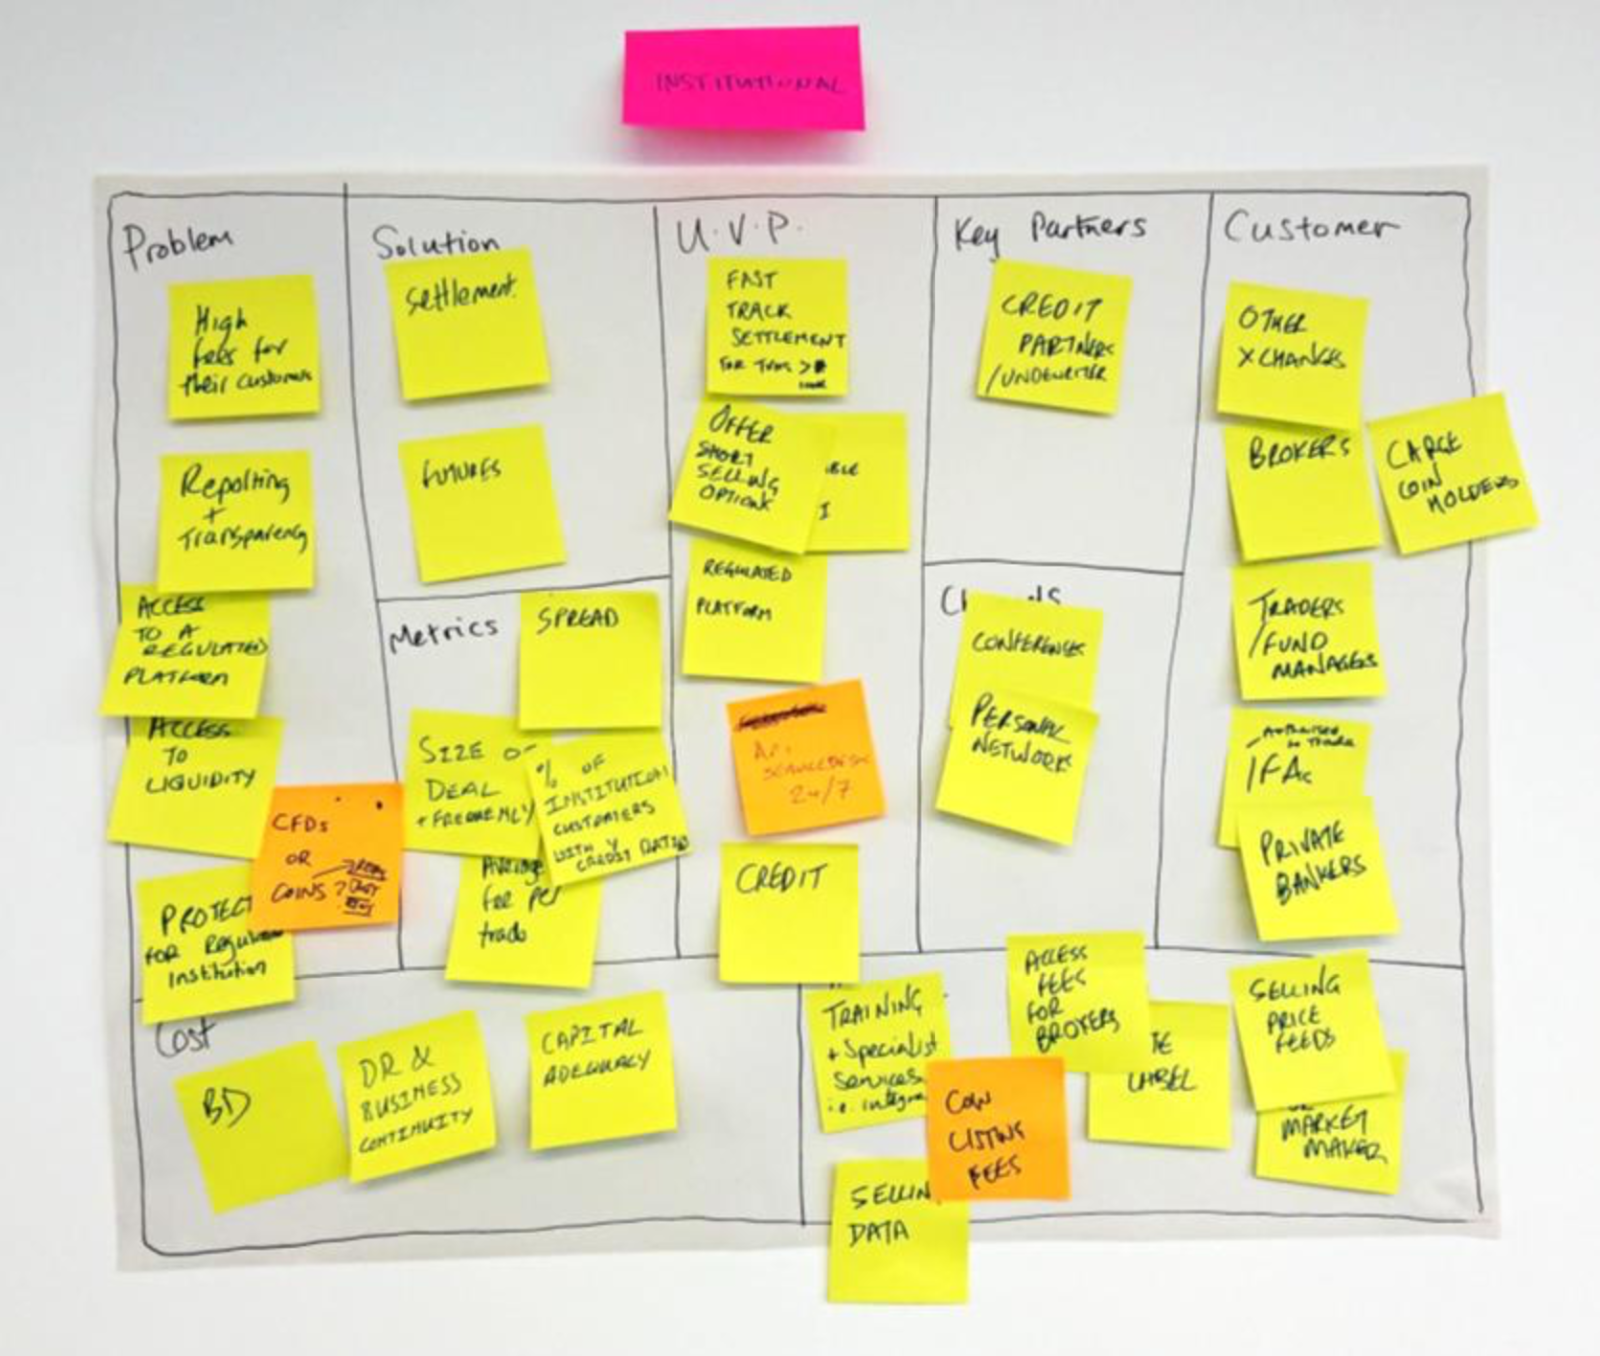 INSTITUTIONAL
Problem
High
fees for
their customers
Reporting
+
Transparency
ACCESS
TO A
REGULATED
PLATFORM
ACCESS
TO
LIQUIDITY
CFDs
OR
COINS?
PROTECT
FOR Regulated
Institution
Solution
Settlement
FUTURES
Metrics
SPREAD
SIZE OF
DEAL
+ FREQUENCY
% OF
INSTITUTION
CUSTOMERS
WITH
CREDIT RATIO
Average
fee per
trade
U.V.P.
FAST
TRACK
SETTLEMENT
FOR >
OFFER
SHORT
SELLING
OPTIONS
REGULATED
PLATFORM
24/7
CREDIT
Key Partners
CREDIT
PARTNERS
/UNDEWRITER
CONFERENCES
PERSONAL
NETWORK
Customer
OTHER
XCHANGES
BROKERS
LARGE
COIN
HOLDERS
TRADERS
/FUND
MANAGERS
Authorised
to Trade
IFAs
PRIVATE
BANKERS
Cost
BD
DR &
BUSINESS
CONTINUITY
CAPITAL
ADEQUACY
TRAINING
+ Specialist
Services
i.e. integra
ACCESS
FEES
FOR
BROKERS
TE
LABEL
SELLING
PRICE
FEEDS
MARKET
MAKER
COIN
LISTING
FEES
SELLIN
DATA